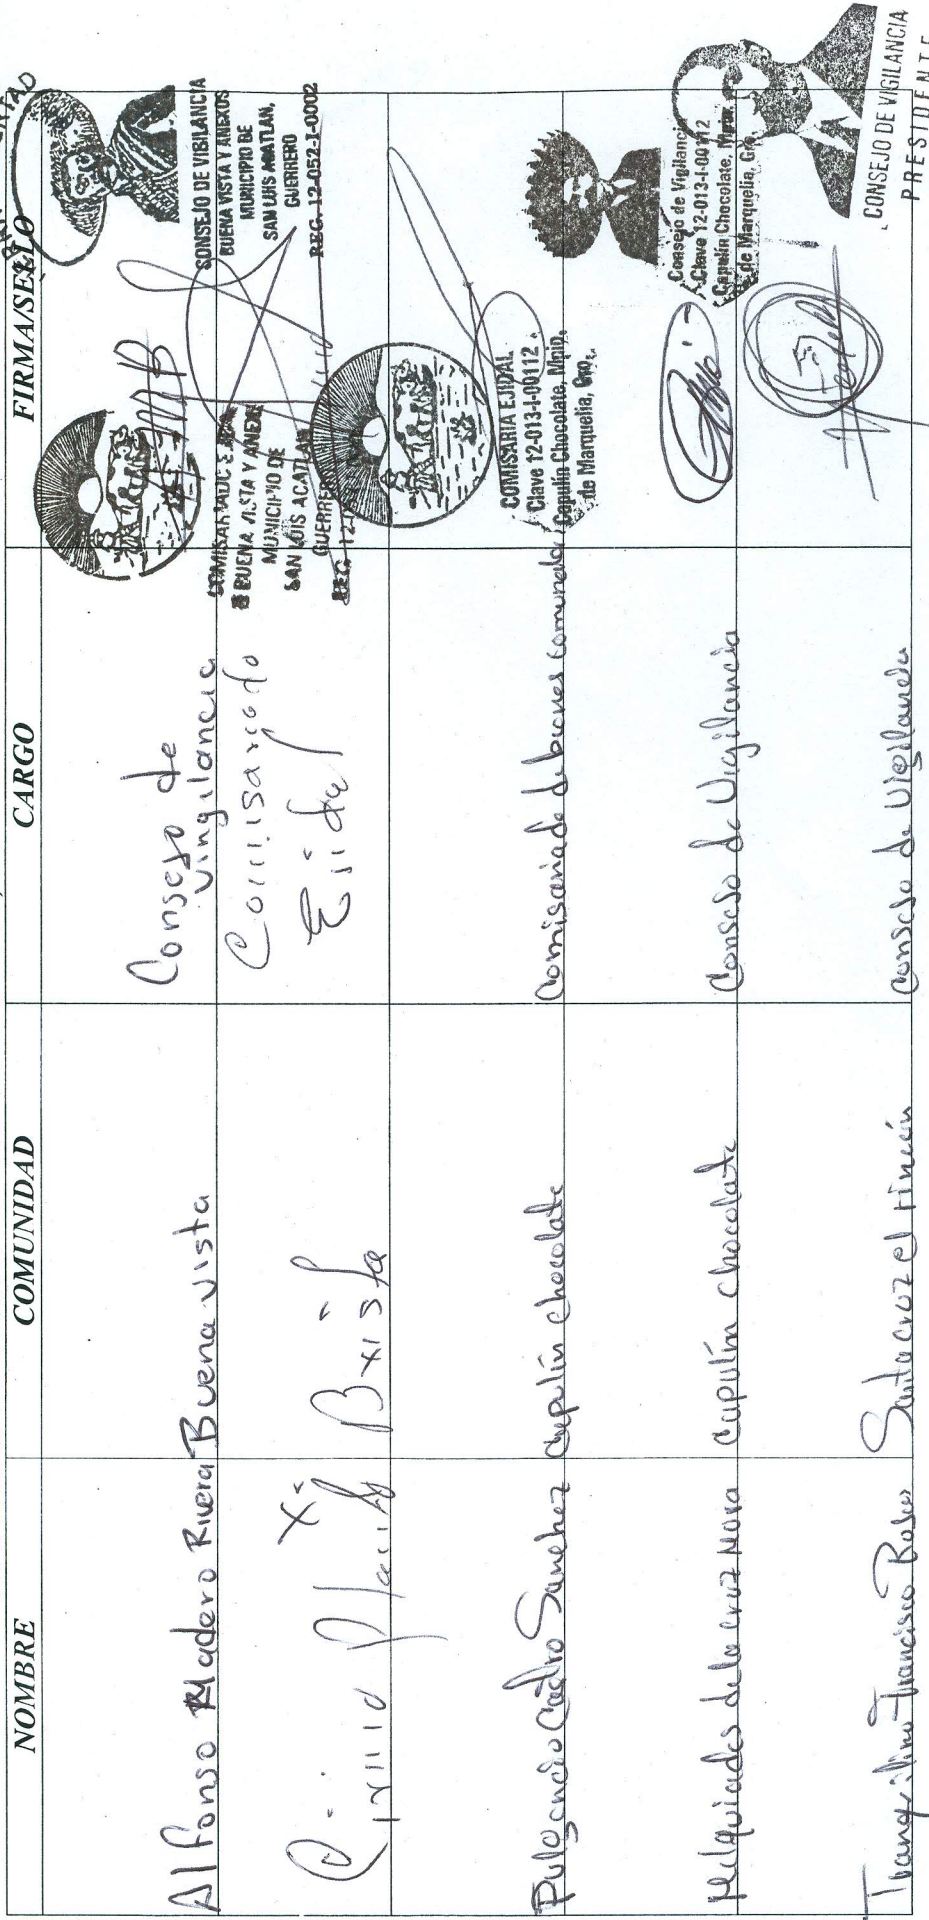 NOMBRE COMUNIDAD CARGO FIRMA/SELLO
Alfonso Madero Rivera Buena vista Consejo de
Vingilancia
CONSEJO DE VIBILANCIA
BUENA VISTA Y ANEXOS
MUNICIPIO DE
SAN LUIS ACATLAN,
GUERRERO
REG. 12-052-1-0002
Comisariado
Ejidal
BUENA VISTA Y ANEX
MUNICIPIO DE
SAN LUIS ACATLAN
GUERRERO
REG. 12-
Castro Sanchez Capulín chocolate Comisaria de bienes comunales
COMISARIA EJIDAL
Clave 12-013-1-00112
Capulin Chocolate, Mpio.
de Marquelia, Gro.
Melquiades de la cruz Nava Capulín chocolate Consejo de Vigilancia
Consejo de Vigilanci
Clave 12-013-1-00112
Capulin Chocolate, Mpio.
de Marquelia, Gro.
Tranquilino Francisco Santa cruz el rincón Consejo de Vigilancia
CONSEJO DE VIGILANCIA
PRESIDENTE